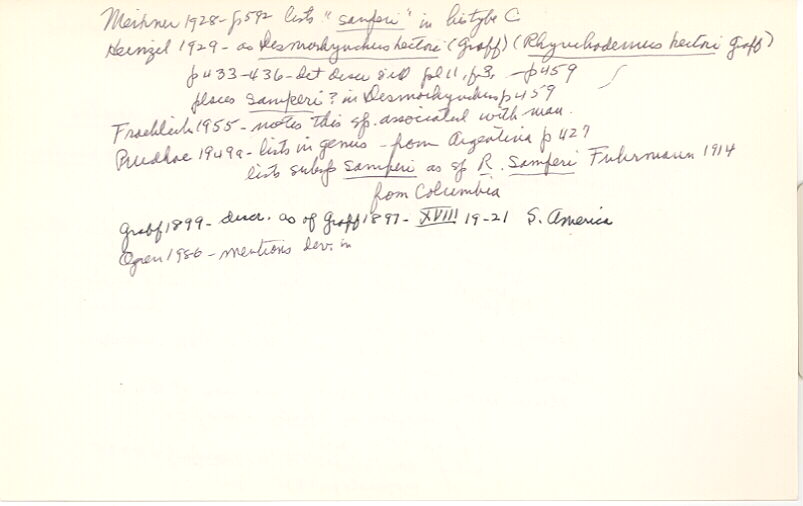 Meixner 1928 - p592 lists "samperi" in histype C
Heinzel 1929 - as Desmorhynchus hectori (Graff) (Rhynchodemus hectori Graff)
p433-436 - det descr & ill pl 11, f.3, - p459
places samperi? in Desmorhynchus p459
Froehlich 1955 - notes this sp. associated with man.
Prudhoe 1949a - lists in genus - from Argentina p 427
lists subsp samperi as sp R. samperi Fuhrmann 1914
from Columbia
Graff 1899 - descr. as of Graff 1897 - XVIII 19-21 S. America
Ogren 1956 - mentions dev. in